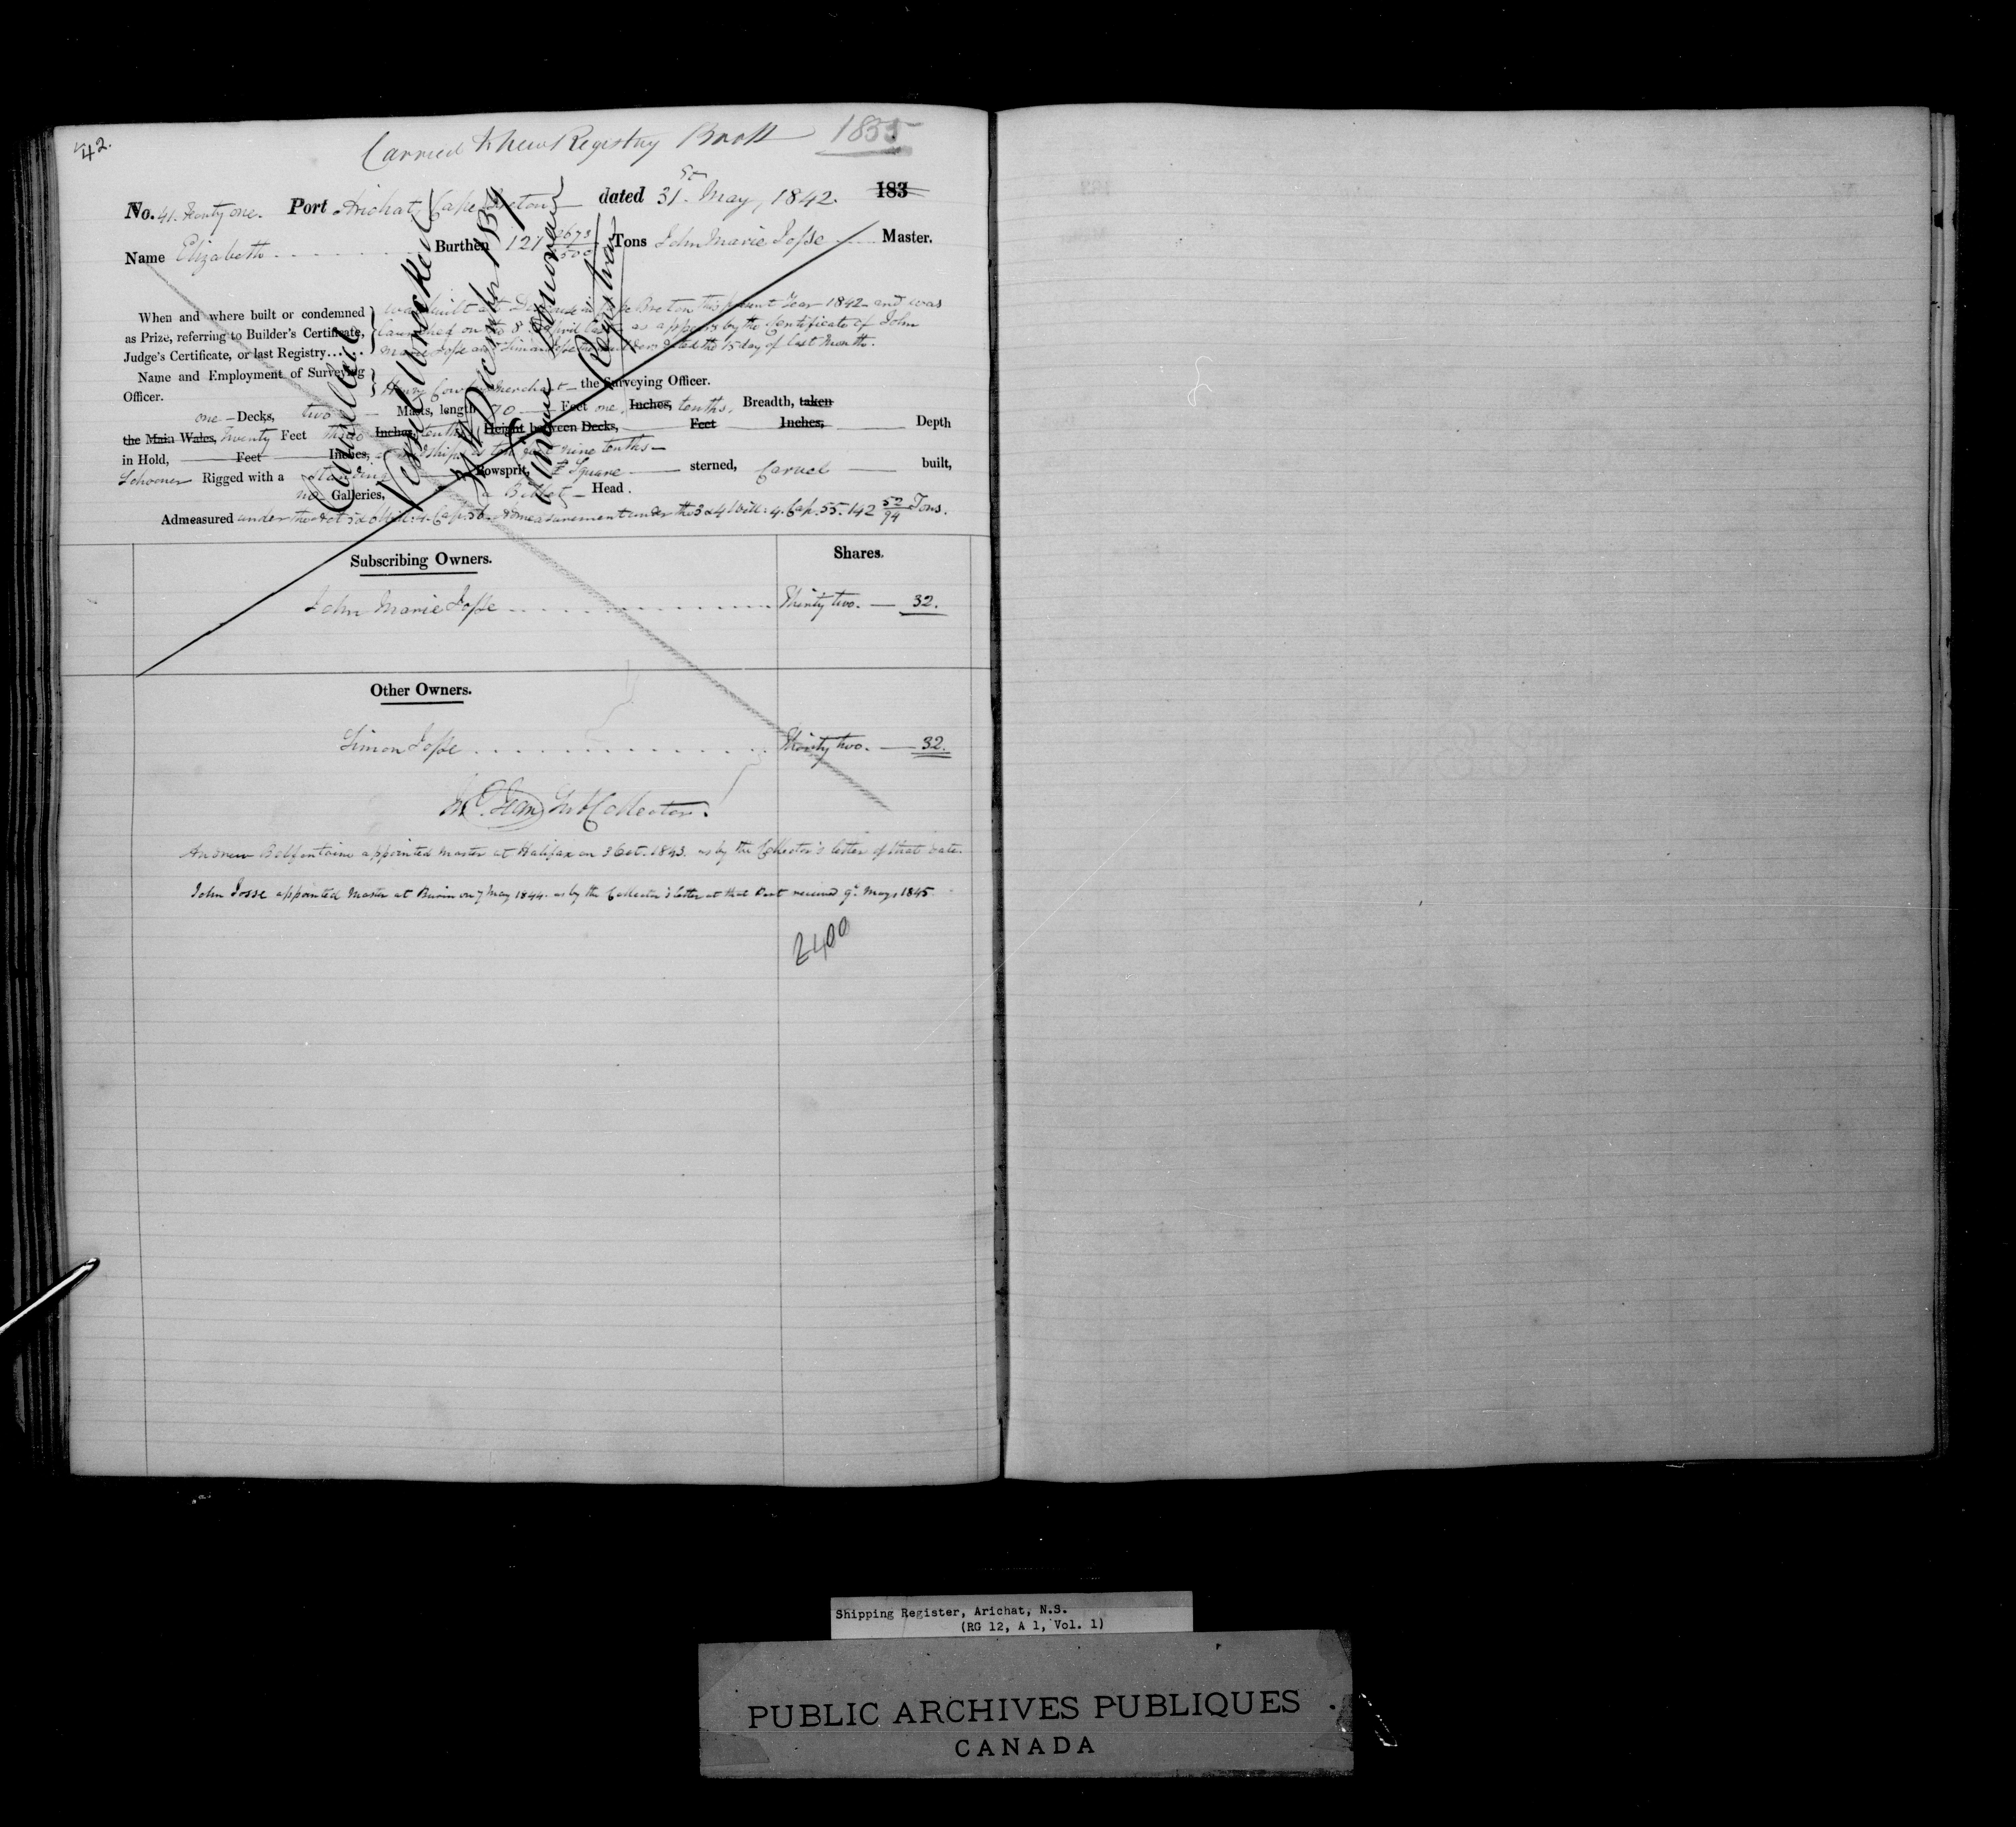 42.
Carried to new Registry Book 1855
No. 41. Forty one. Port Arichat, Cape Breton dated 31st May, 1842. 183
Name Elizabeth Burthen 121 2673/3500 Tons John Marie Josse Master.
When and where built or condemned as Prize, referring to Builder's Certificate, Judge's Certificate, or last Registry......
was built at in Cape Breton this present Year 1842 and was
launched on the 8 April last as appears by the Certificate of John
Marie Josse and Simon Josse the builders dated the 15 day of last Month.
Name and Employment of Surveying Officer.
Henry merchant the Surveying Officer.
one Decks, two Masts, length 70 Feet one Inches, tenths, Breadth, taken
the Main Wales, Twenty Feet three Inches, tenths, Height between Decks, Feet Inches, Depth
in Hold, Feet Inches, midships is ten feet nine tenths
Schooner Rigged with a Standing Bowsprit, Square sterned, Carvel built,
no Galleries, a Billet Head.
Admeasured under the Act 5 & 6 Will: 4. Cap. 56. Admeasurement under the 3 & 4 Will: 4. Cap. 55. 142 52/94 Tons.
Cancelled
Vessel Wrecked
December 1
Registrar
Subscribing Owners. Shares.
John Marie Josse Thirty two. 32.
Other Owners.
Simon Josse Thirty two. 32.
Sub Collector.
Andrew Belfontaine appointed Master at Halifax on 3 Oct. 1843. as by the Collector's letter of that date.
John Josse appointed Master at Burin on 7 May 1844. as by the Collector's letter at that Port received 9th May, 1845.
2400
Shipping Register, Arichat, N.S.
(RG 12, A 1, Vol. 1)
PUBLIC ARCHIVES PUBLIQUES
CANADA